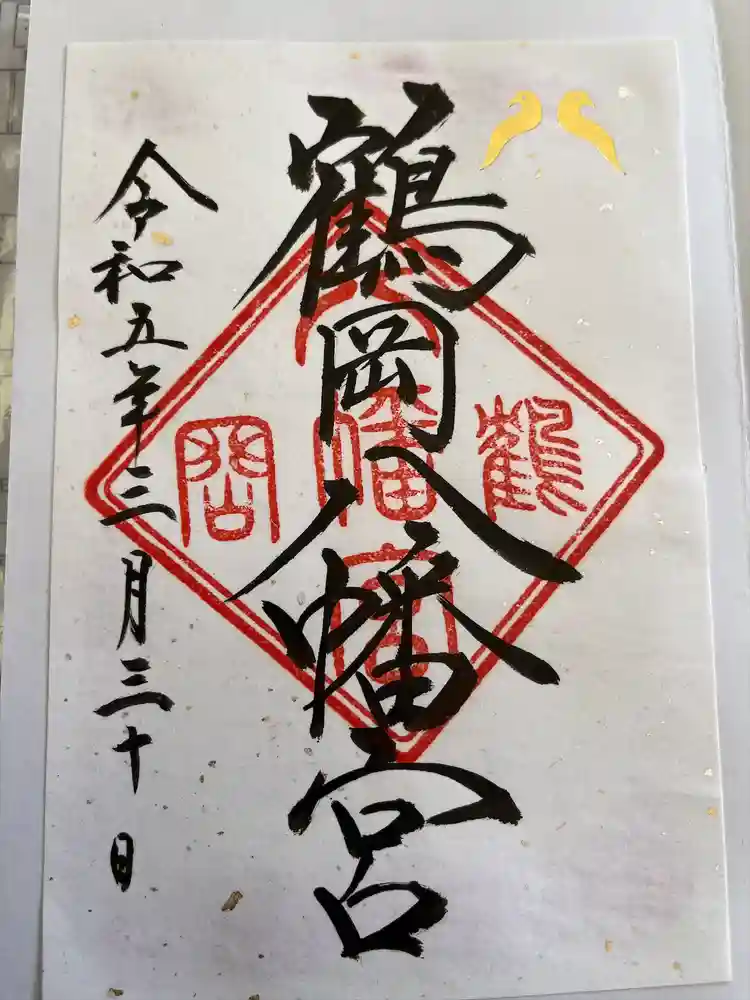 鶴岡八幡宮
鶴岡八幡宮
令和五年三月三十日